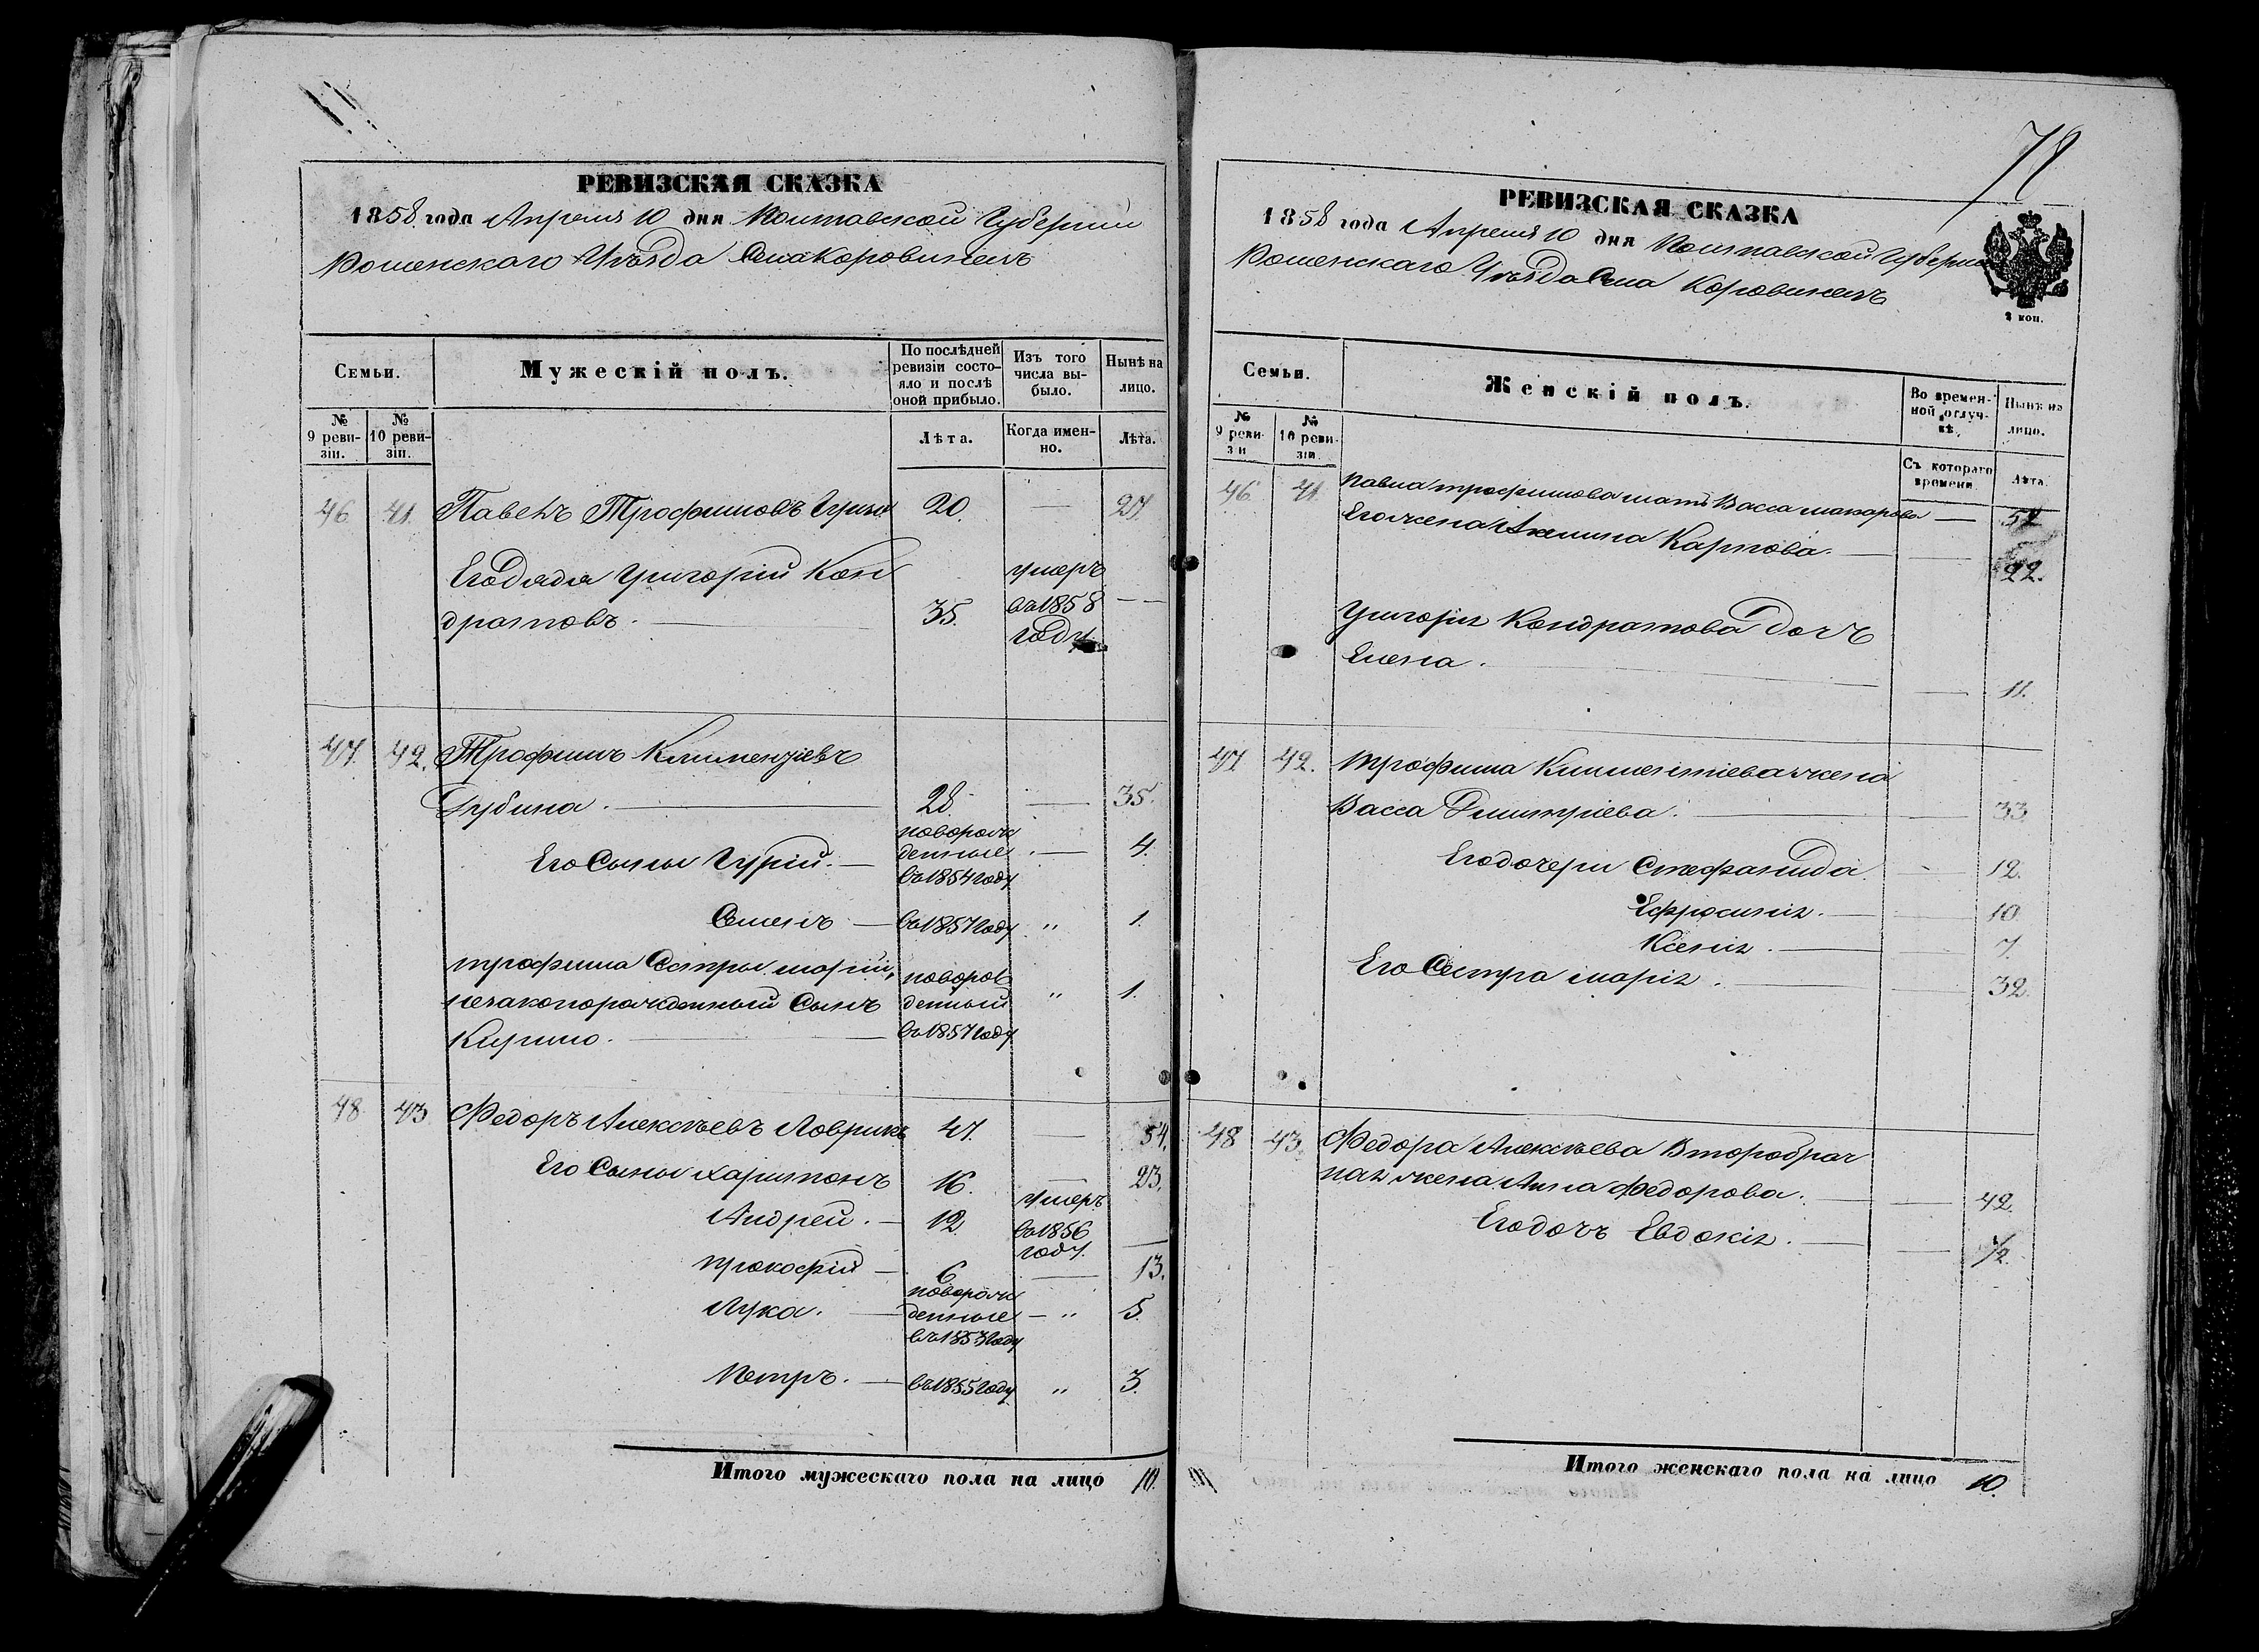 РЕВИЗСКАЯ СКАЗКА
1858 года Апреля 10 дня Полтавской Губернии
Роменскаго Уѣзда Села Коровинецъ
Семьи.
Мужескій полъ.
По послѣдней ревизіи состояло и послѣ оной прибыло.
Изъ того числа выбыло.
Нынѣ на лицо.
№ 9 ревизіи.
№ 10 ревизіи.
Лѣта.
Когда именно.
Лѣта.
46. 41. Павелъ Трофимовъ 20. — 27.
Его дядя Григорій Кон
дратовъ. 35. умеръ въ 1858 году — —
47. 42. Трофимъ Климентіевъ
Губина. 28 — 35.
Его Сыны Гурій. — поворож
денные
въ 1854 году — 4.
Семенъ — въ 1857 году " 1.
трофима Сестры маріи,
незаконорожденный Сынъ
Кирило. новорож
денный
въ 1857 году " 1.
48. 43 Федоръ Алексѣевъ Лаврикъ 47. — 54.
Его Сыны харитонъ 16. — 23.
Андрей. — 12. умеръ
въ 1856
году. —
прокофій — 6 — 13.
Лука. — новорож
денные
въ 1853 году — " 5.
Петръ. — въ 1855 году " 3.
Итого мужескаго пола на лицо 10.
78
РЕВИЗСКАЯ СКАЗКА
1858 года Апреля 10 дня Полтавской Губернии
Роменскаго Уѣзда Села Коровинецъ
2 коп.
Семьи.
Женскій полъ.
Во временной отлучкѣ.
Нынѣ на лицо.
№ 9 ревизіи
№ 10 ревизіи.
Съ котораго времени.
Лѣта.
46. 41. павла трофимова мать Васса макарова — 52
Его жена Акилина Карпова. — 22.
Григорія Кондратова Дочъ
Елена. — 11.
47 42. трофима Климентіева жена
Васса Дмитріева. — 33.
Его дочери Стефанида. — 12.
Ефросинія. — 10.
Ксенія. — 7.
Его Сестра марія. — 32.
48 43. Федора Алексѣева Второбрач
ная жена Анна Федорова. — 42.
Его дочъ Евдокія. — 1/2.
Итого женскаго пола на лицо 10.